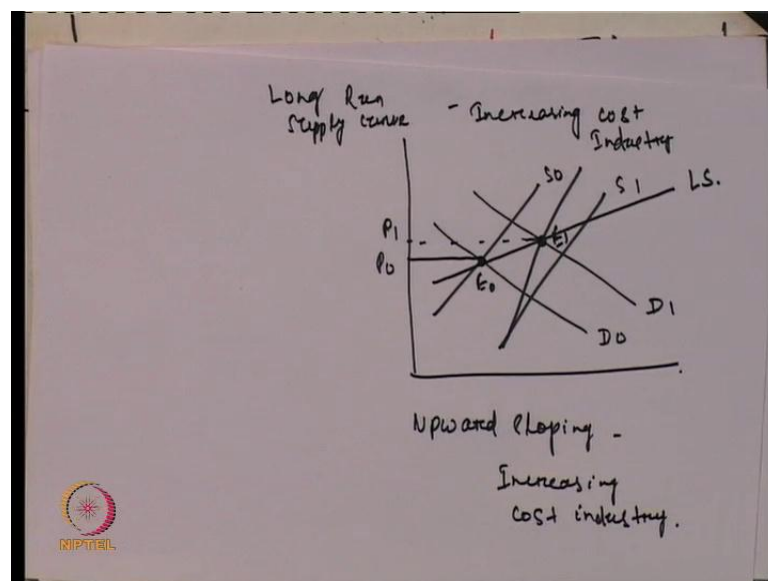 Long Run
Supply Curve
- Increasing cost
Industry
S0
S1
LS.
P1
P0
E1
E0
D1
D0
Upward Sloping -
Increasing
cost industry.
NPTEL